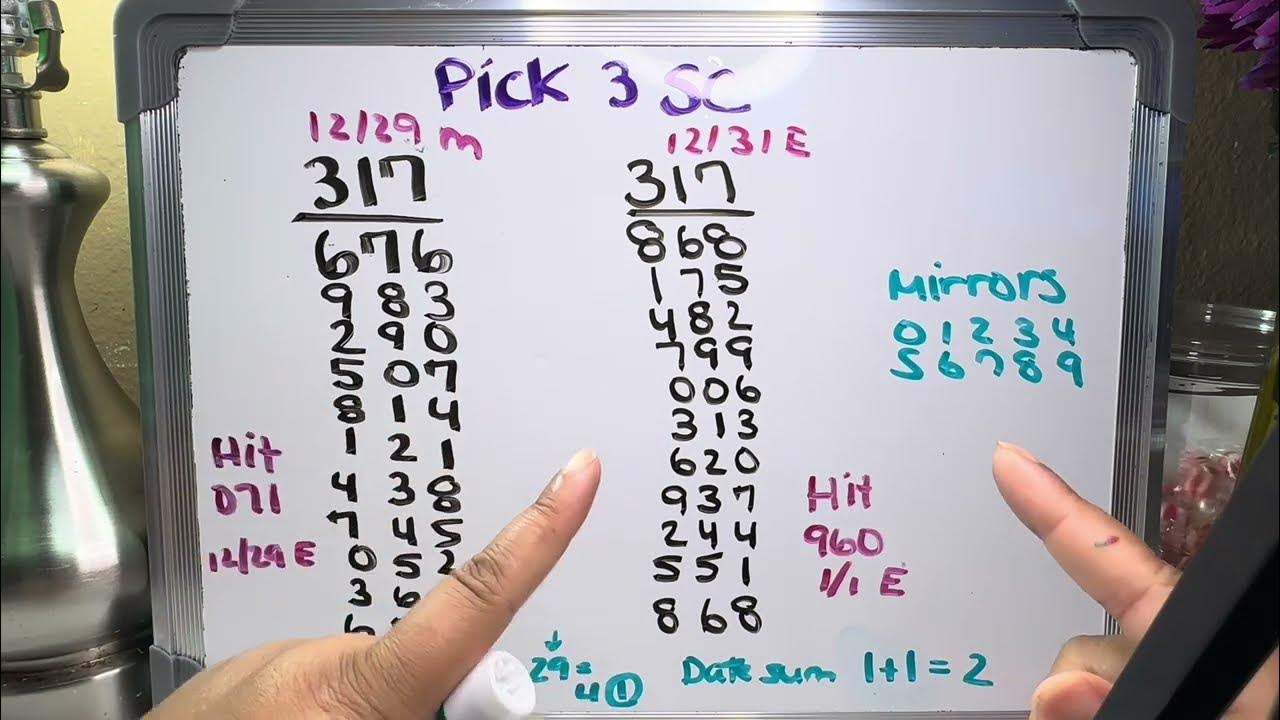 Pick 3 SC
12/29 m
317
676
983
290
507
814
121
438
745
052
3
Hit
071
12/29 E
12/31 E
317
868
175
482
799
006
313
620
937
244
551
868
Hit
960
1/1 E
Mirrors
0 1 2 3 4
5 6 7 8 9
29=
4 1
Date sum 1+1=2